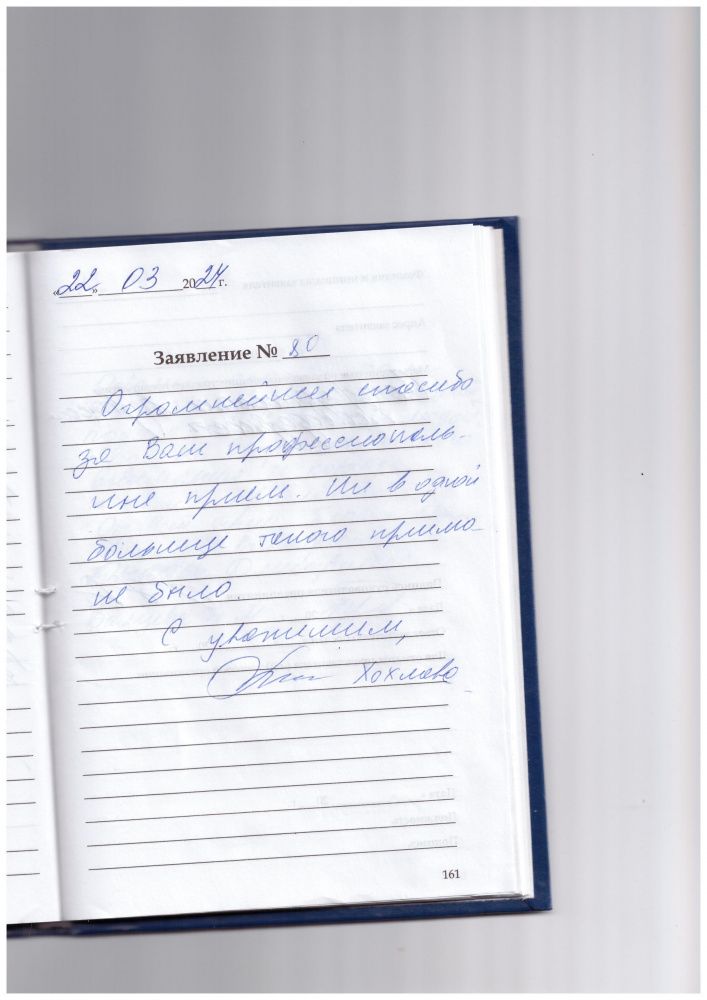 «22» 03 2024 г.
Заявление № 80
Огромнейшее спасибо
за Ваш профессиональ-
ный прием. Ни в одной
больнице такого приема
не было.
С уважением,
Хохлова
161